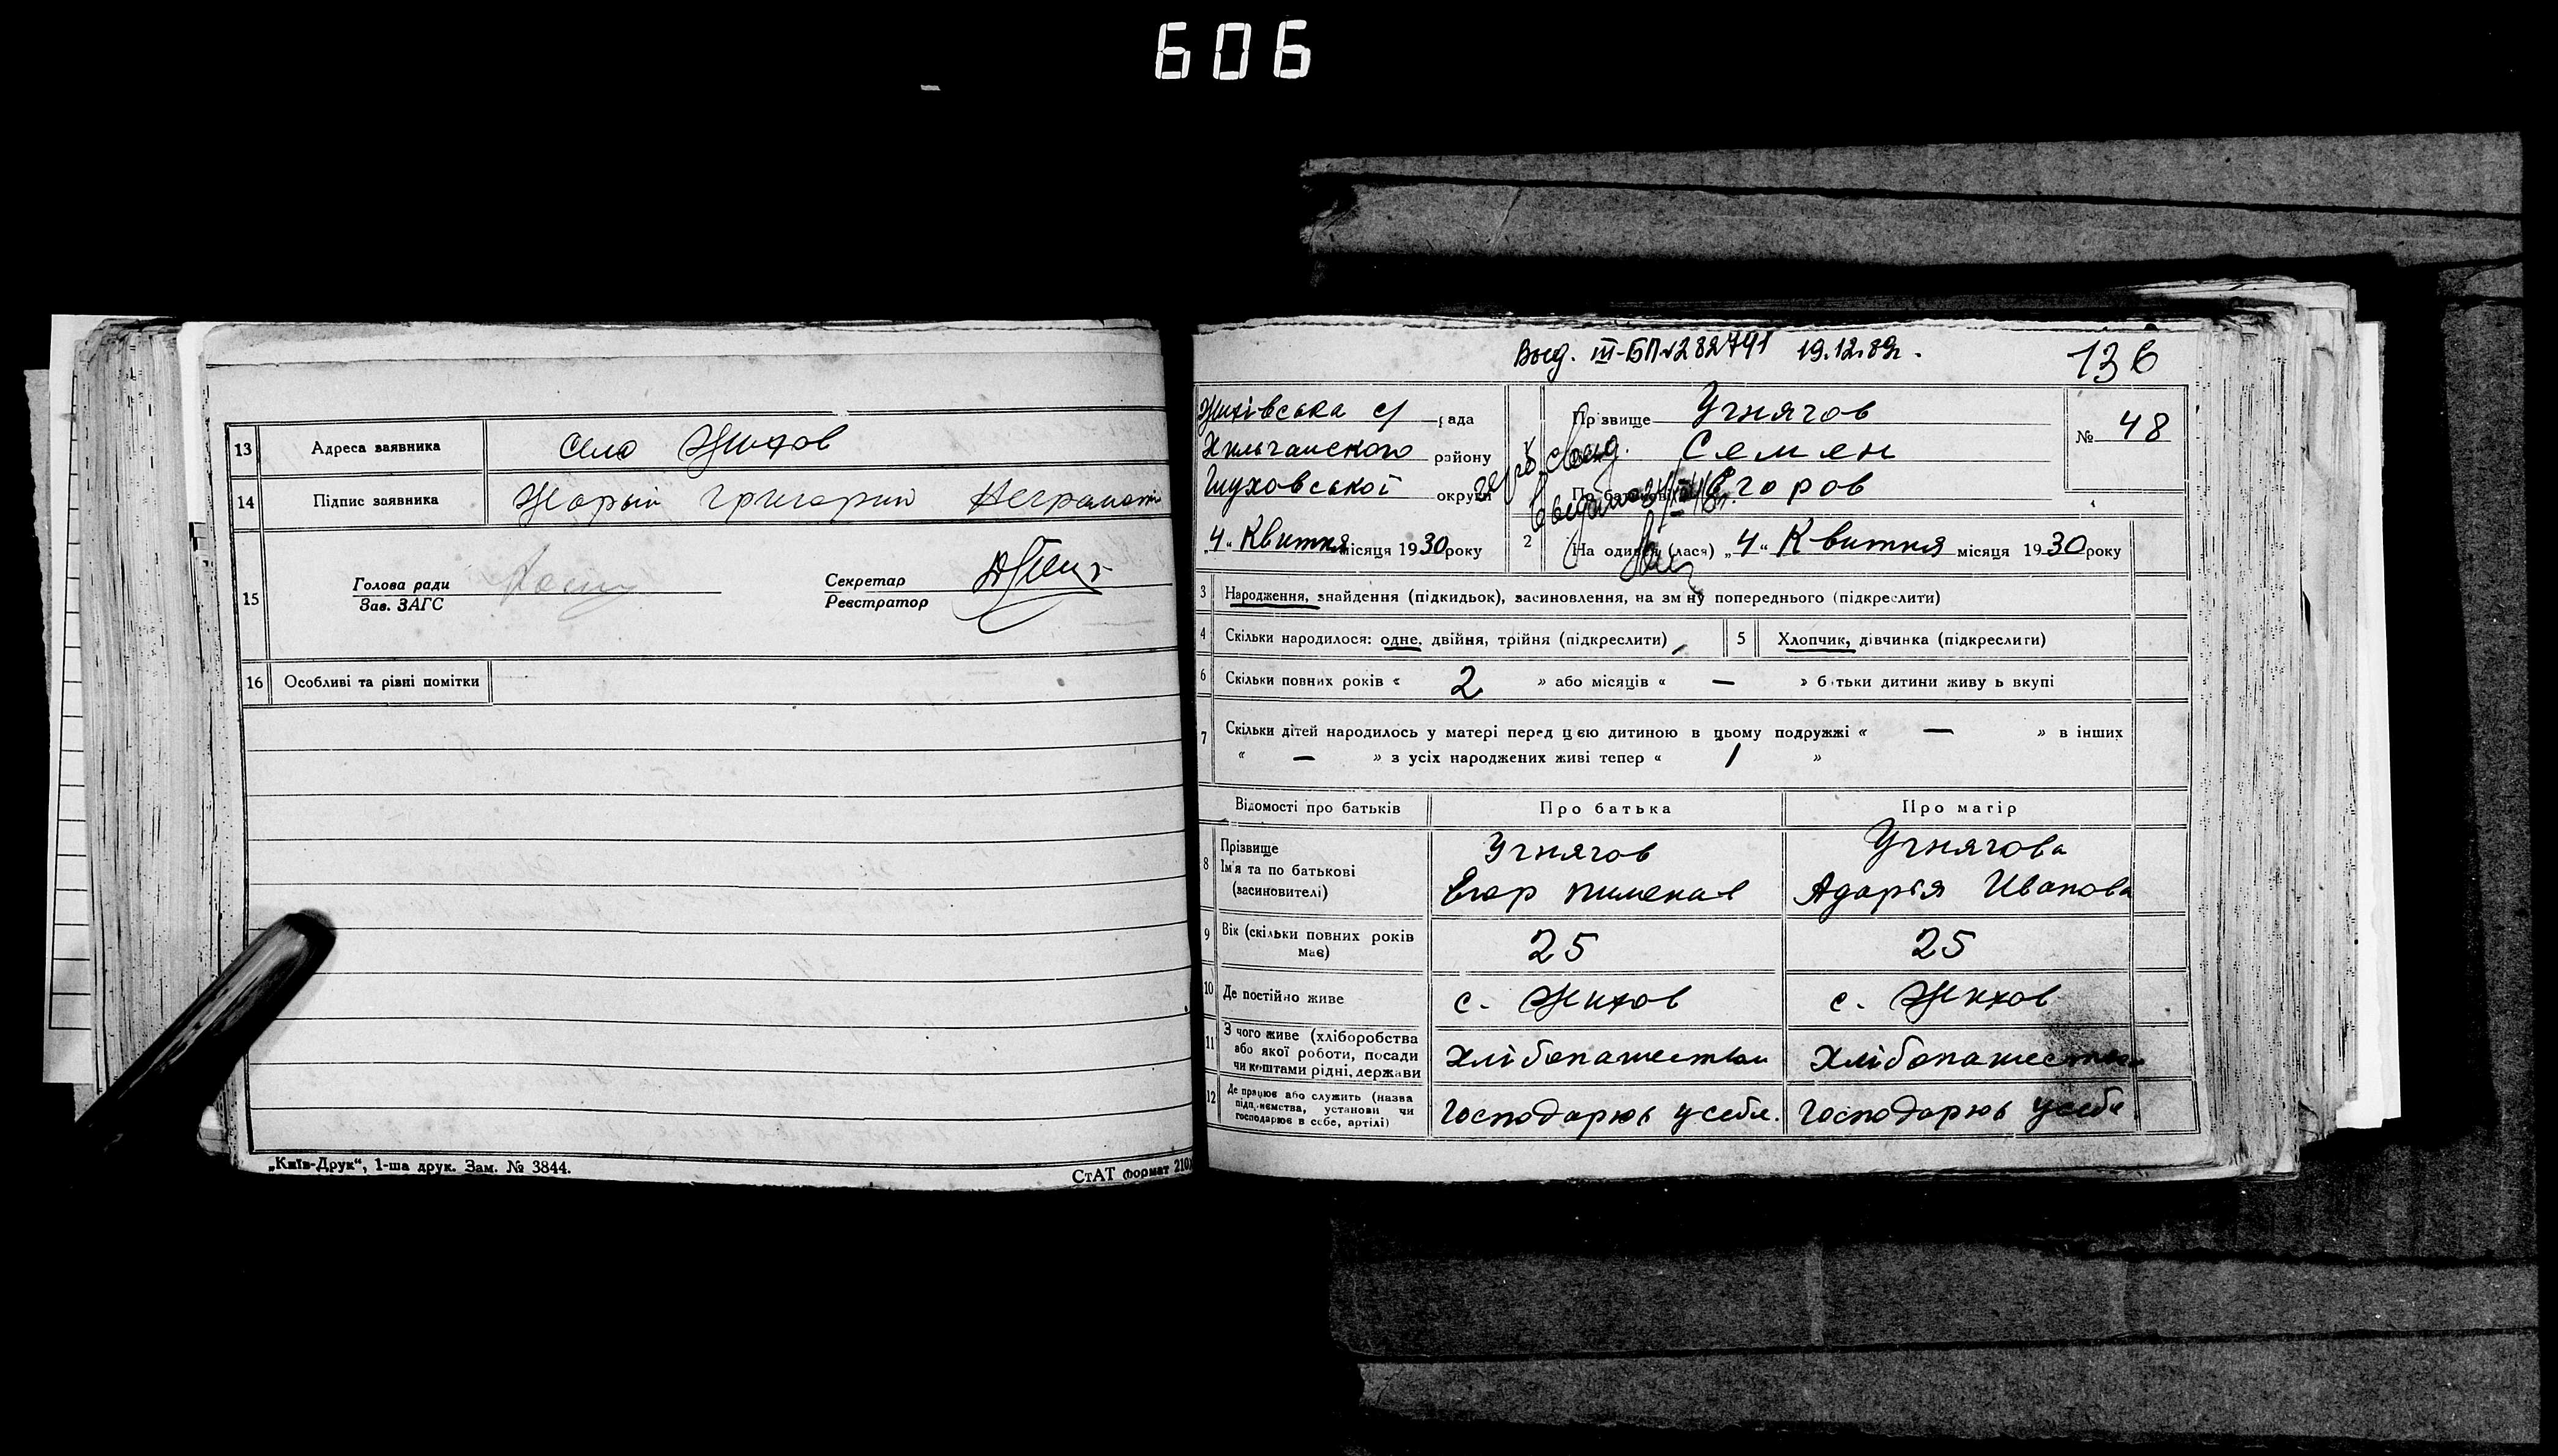 606
13 Адреса заявника село Жихов
14 Підпис заявника Жорый Григорий Неграмотн
15 Голова ради
Зав. ЗАГС
Секретар
Реєстратор
16 Особливі та різні помітки
„Київ-Друк“, 1-ша друк. Зам. № 3844.
СтАТ формат 210
Выд. III-БП №282791 19.12.89г.
136
Жихівська с/ рада
Хильчанского району
Глуховської округи
„4“ Квитня місяця 1930 року
Прізвище Угнячов
Семен
По батькові Егоров
свид.
№ 48
2 На одився (лася) „4“ Квитня місяця 1930 року
3 Народження, знайдення (підкидьок), засиновлення, на зм ну попереднього (підкреслити)
4 Скільки народилося: одне, двійня, трійня (підкреслити)
5 Хлопчик, дівчинка (підкреслити)
6 Скільки повних років « 2 » або місяців « — » б тьки дитини живу ь вкупі
7 Скільки дітей народилось у матері перед цією дитиною в цьому подружжі « — » в інших
« — » з усіх народжених живі тепер « 1 »
Відомості про батьків Про батька Про матір
8 Прізвище Угнячов Угнячова
Ім'я та по батькові Егор Пименов Адарья Иванова
(засиновителі)
9 Вік (скільки повних років має) 25 25
10 Де постійно живе с. Жихов с. Жихов
11 З чого живе (хліборобства
або якої роботи, посади
чи коштами рідні, держави
Хлібопашеством Хлібопашеством
12 Де працює або служить (назва
підприємства, установи чи
господарює в себе, артілі)
Господарює у себе. Господарює у себе.